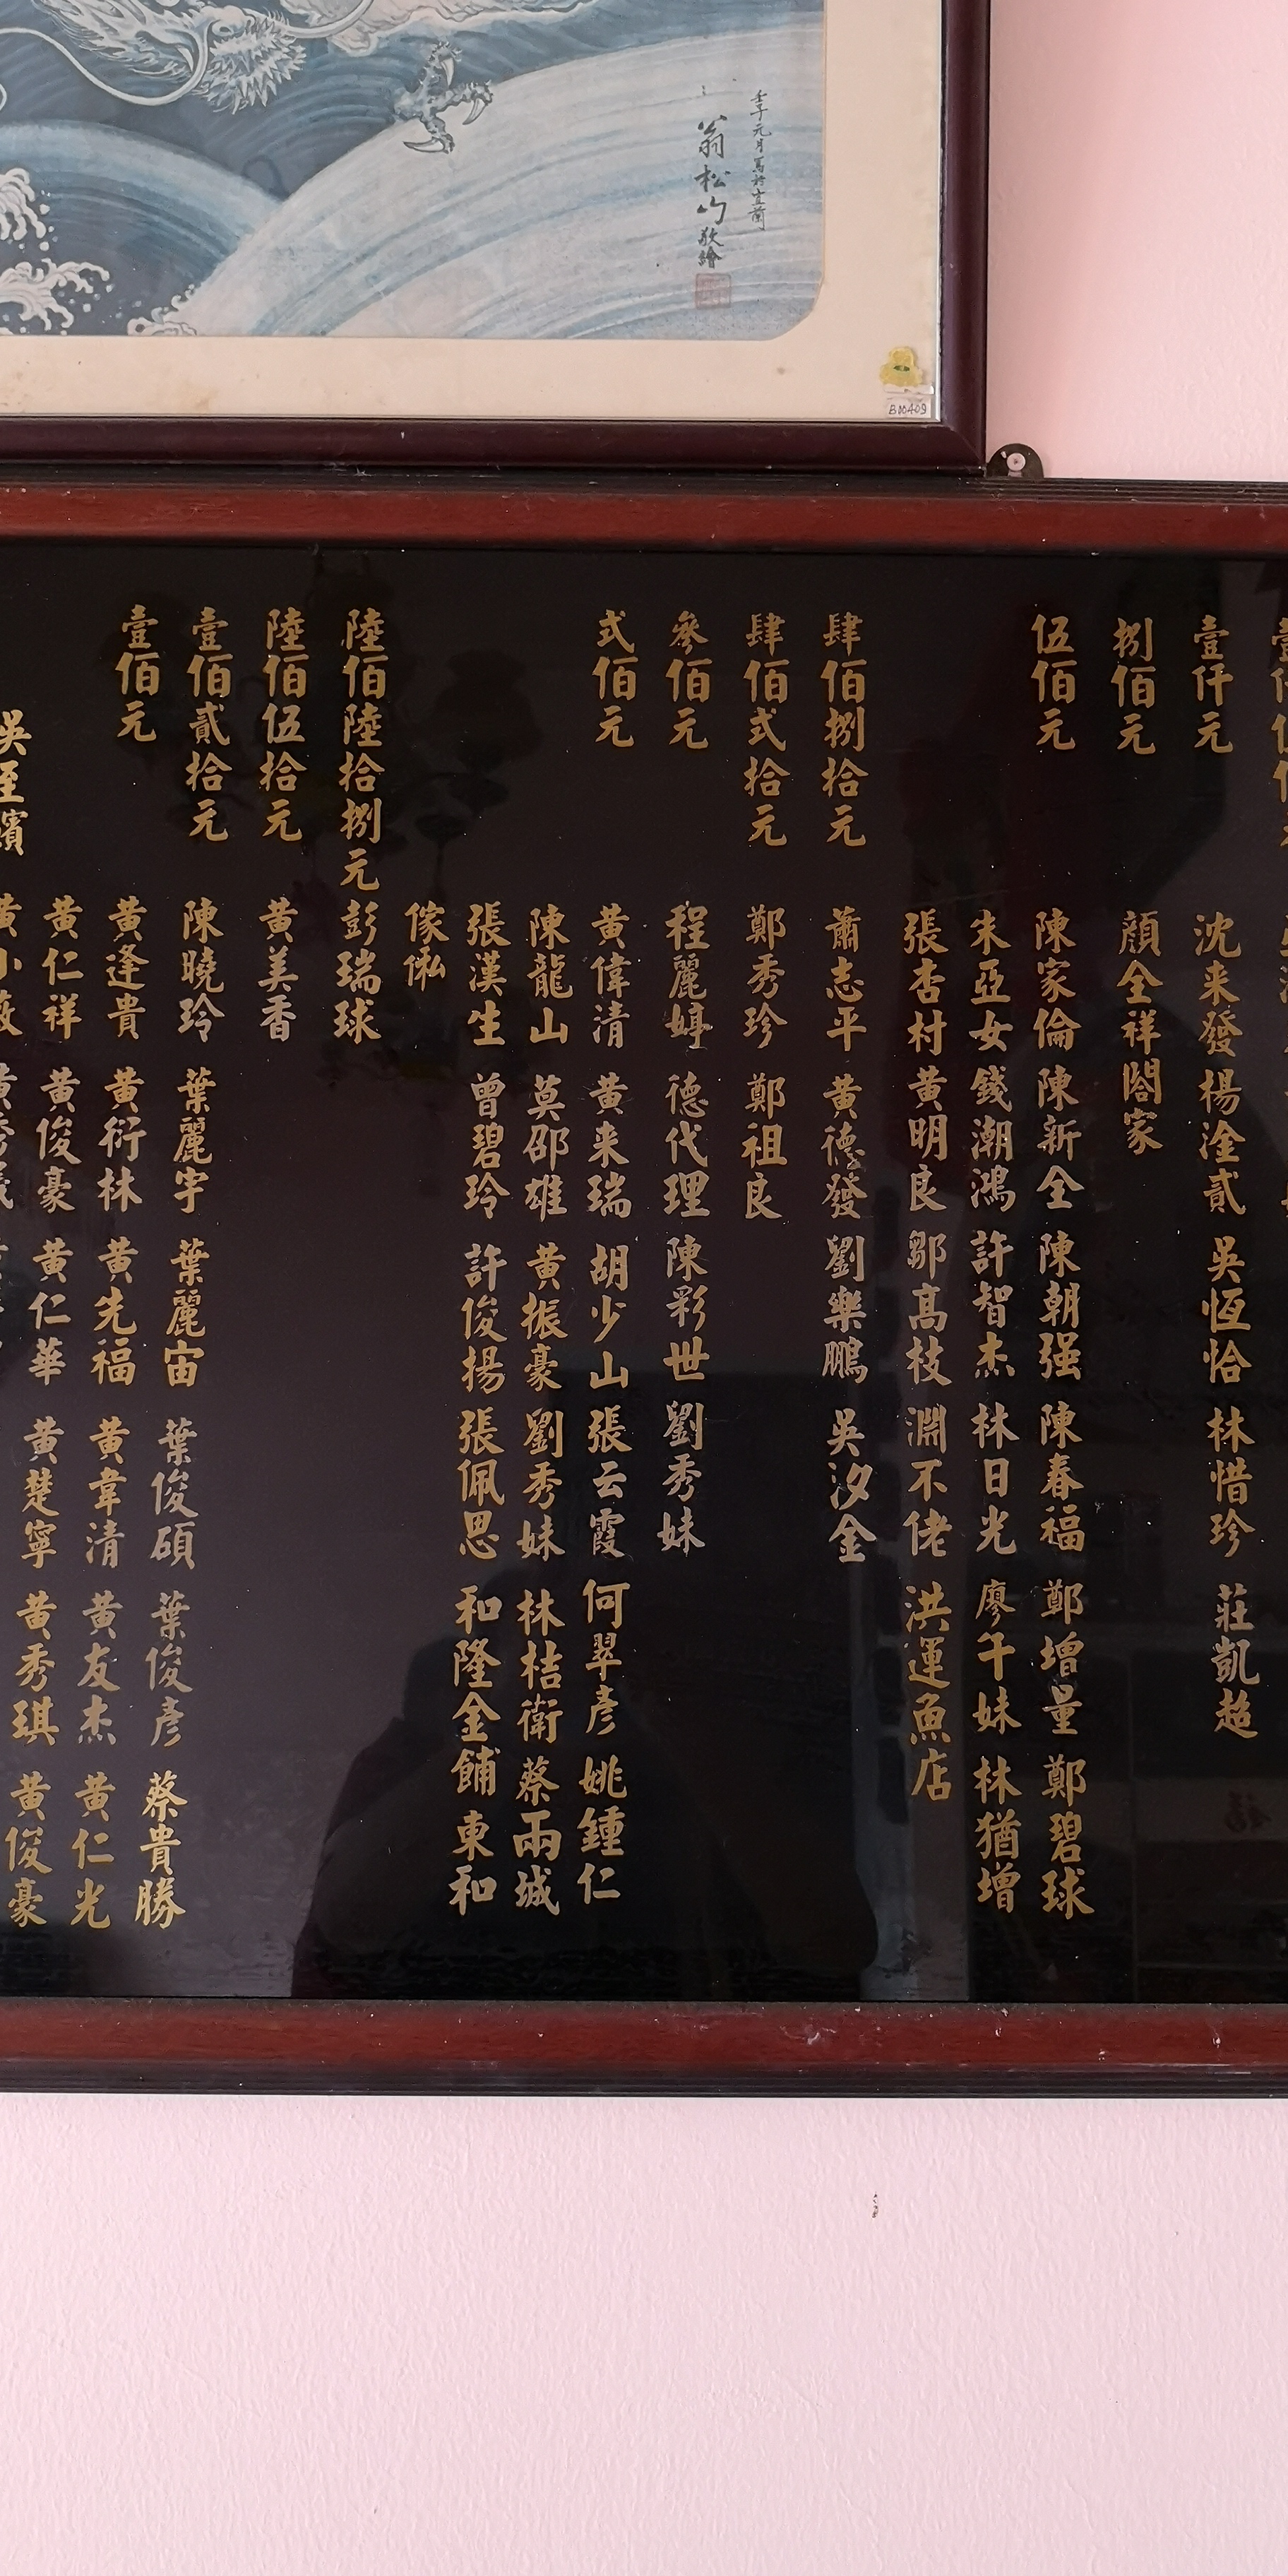 壬子元月寫於宜蘭
翁松山敬繪
B00409
壹仟元 沈来發 楊淦貳 吳恆恰 林惜珍 莊凱超
捌佰元 顏全祥閤家
伍佰元 陳家倫 陳新全 陳朝强 陳春福 鄭增量 鄭碧球
朱亞女 錢潮鴻 許智杰 林日光 廖午妹 林猶增
張杏村 黄明良 鄒高枝 淵不佬 洪運魚店
肆佰捌拾元 蕭志平 黄德發 劉樂鵬 吳汐金
肆佰弍拾元 鄭秀珍 鄭祖良
叁佰元 程麗婷 德代理 陳彩世 劉秀妹
弍佰元 黄偉清 黄来瑞 胡少山 張云霞 何翠彦 姚鍾仁
陳龍山 莫邵雄 黄振豪 劉秀妹 林桔衛 蔡兩城
張漢生 曾碧玲 許俊揚 張佩思 和隆金鋪 東和
傢俬
陸佰陸拾捌元 彭瑞球
陸佰伍拾元 黄美香
壹佰貳拾元 陳曉玲 葉麗宇 葉麗宙 葉俊碩 葉俊彦 蔡貴勝
壹佰元 黄逢貴 黄衍林 黄先福 黄韋清 黄友杰 黄仁光
黄仁祥 黄俊豪 黄仁華 黄楚寧 黄秀琪 黄俊豪